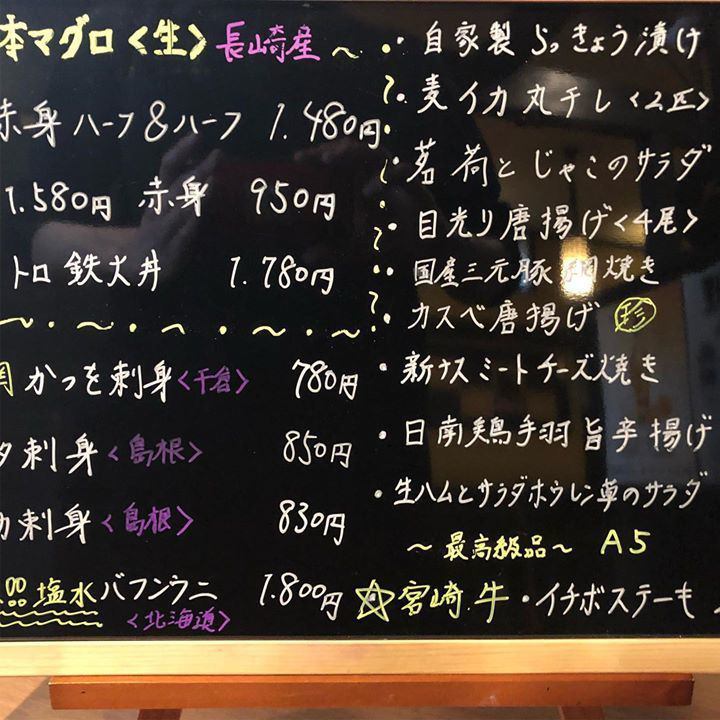 本マグロ〈生〉長崎産 〜
赤身ハーフ&ハーフ 1.480円
1.580円 赤身 950円
トロ鉄火丼 1.780円
かつを刺身〈千倉〉 780円
刺身〈島根〉 850円
刺身〈島根〉 830円
塩水バフンウニ 1.800円
〈北海道〉
・自家製らっきょう漬け
・麦イカ丸干し〈2匹〉
・茗荷とじゃこのサラダ
・目光り唐揚げ〈4尾〉
・国産三元豚 焼き
・カスベ唐揚げ 珍
・新ナスミートチーズ焼き
・日南鶏手羽旨辛揚げ
・生ハムとサラダホウレン草のサラダ
〜最高級品〜 A5
☆宮崎牛・イチボステーキ